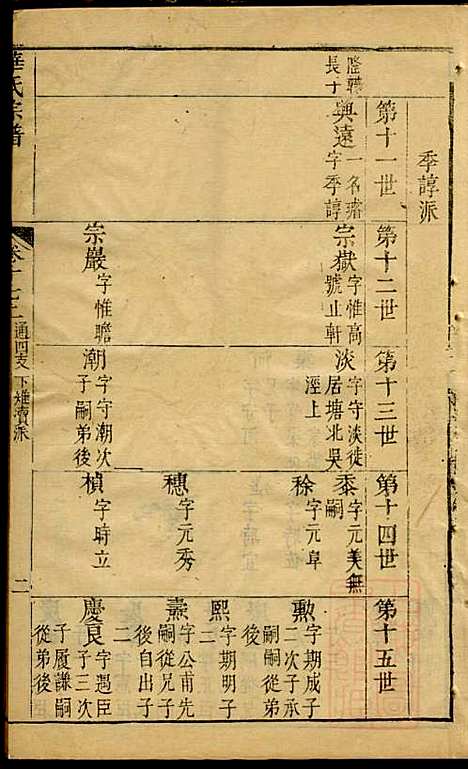 季諄派
第十一世
第十二世
第十三世
第十四世
第十五世
隆轉
長子
興遠 一名瑨
字季諄
宗嶽 字惟高
號止軒
宗嚴 字惟瞻
淡 字守淡徙
居塘北吳
涇上
潮 字守潮次
子嗣弟後
黍 字元美無
嗣
稌 字元阜
穗 字元秀
楨 字時立
勲 字期成子
二次子承
嗣嗣從弟
後
熙 字期明子
二
燾 字公甫先
嗣從兄子
後自出子
二
慶良 字遇臣
子三次
子厦謙嗣
從弟後
華氏宗譜
通四支下雉瀆派
二